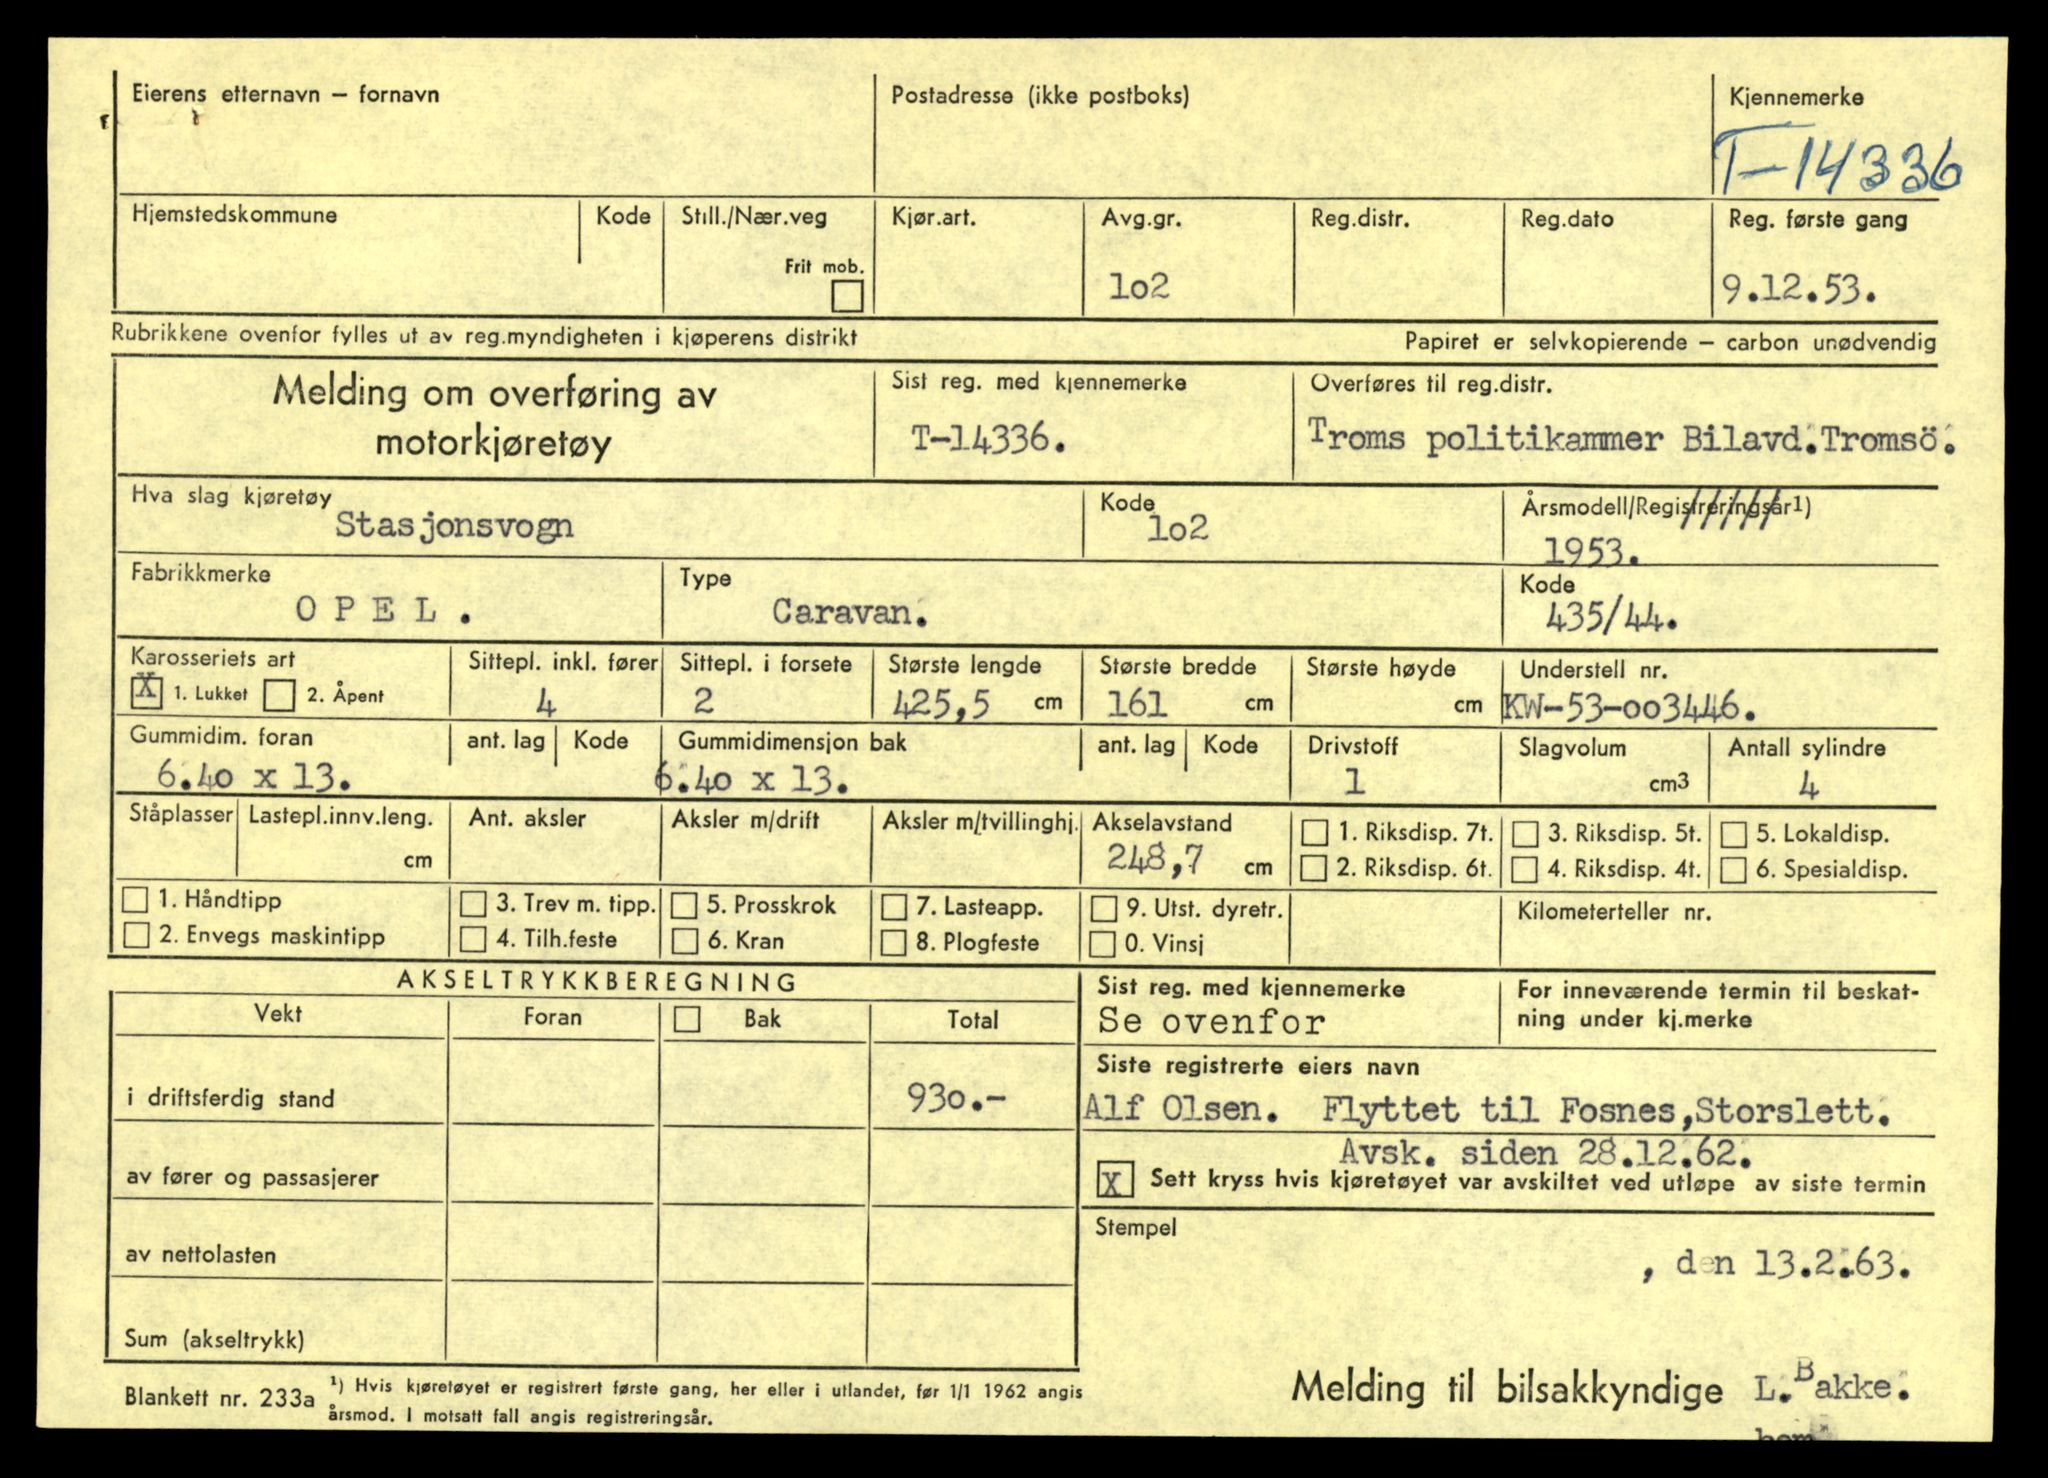 Eierens etternavn – fornavn Postadresse (ikke postboks) Kjennemerke
T-14336
Hjemstedskommune Kode Still./Nær.veg Kjør.art. Avg.gr. Reg.distr. Reg.dato Reg. første gang
Frit mob.
lo2 9.12.53.
Rubrikkene ovenfor fylles ut av reg.myndigheten i kjøperens distrikt Papiret er selvkopierende – carbon unødvendig
Melding om overføring av Sist reg. med kjennemerke Overføres til reg.distr.
motorkjøretøy T-14336. Troms politikammer Bilavd.Tromsö.
Hva slag kjøretøy Kode Årsmodell/Registreringsår1)
Stasjonsvogn lo2 1953.
Fabrikkmerke Type Kode
O P E L . Caravan. 435/44.
Karosseriets art Sittepl. inkl. fører Sittepl. i forsete Største lengde Største bredde Største høyde Understell nr.
X 1. Lukket 2. Åpent 4 2 425,5 cm 161 cm cm KW-53-oo3446.
Gummidim. foran ant. lag Kode Gummidimensjon bak ant. lag Kode Drivstoff Slagvolum Antall sylindre
6.4o x 13. 6.4o x 13. 1 cm3 4
Ståplasser Lastepl.innv.leng. Ant. aksler Aksler m/drift Aksler m/tvillinghj. Akselavstand 1. Riksdisp. 7t. 3. Riksdisp. 5t. 5. Lokaldisp.
cm 248,7 cm 2. Riksdisp. 6t. 4. Riksdisp. 4t. 6. Spesialdisp.
1. Håndtipp 3. Trev m. tipp. 5. Prosskrok 7. Lasteapp. 9. Utst. dyretr. Kilometerteller nr.
2. Envegs maskintipp 4. Tilh.feste 6. Kran 8. Plogfeste 0. Vinsj
AKSELTRYKKBEREGNING Sist reg. med kjennemerke For inneværende termin til beskat-
Vekt Foran Bak Total Se ovenfor ning under kj.merke
Siste registrerte eiers navn
i driftsferdig stand 93o.- Alf Olsen. Flyttet til Fosnes,Storslett.
Avsk. siden 28.12.62.
av fører og passasjerer X Sett kryss hvis kjøretøyet var avskiltet ved utløpe av siste termin
Stempel
av nettolasten , den 13.2.63.
Sum (akseltrykk)
Blankett nr. 233a 1) Hvis kjøretøyet er registrert første gang, her eller i utlandet, før 1/1 1962 angis Melding til bilsakkyndige L.Bakke.
årsmod. I motsatt fall angis registreringsår.